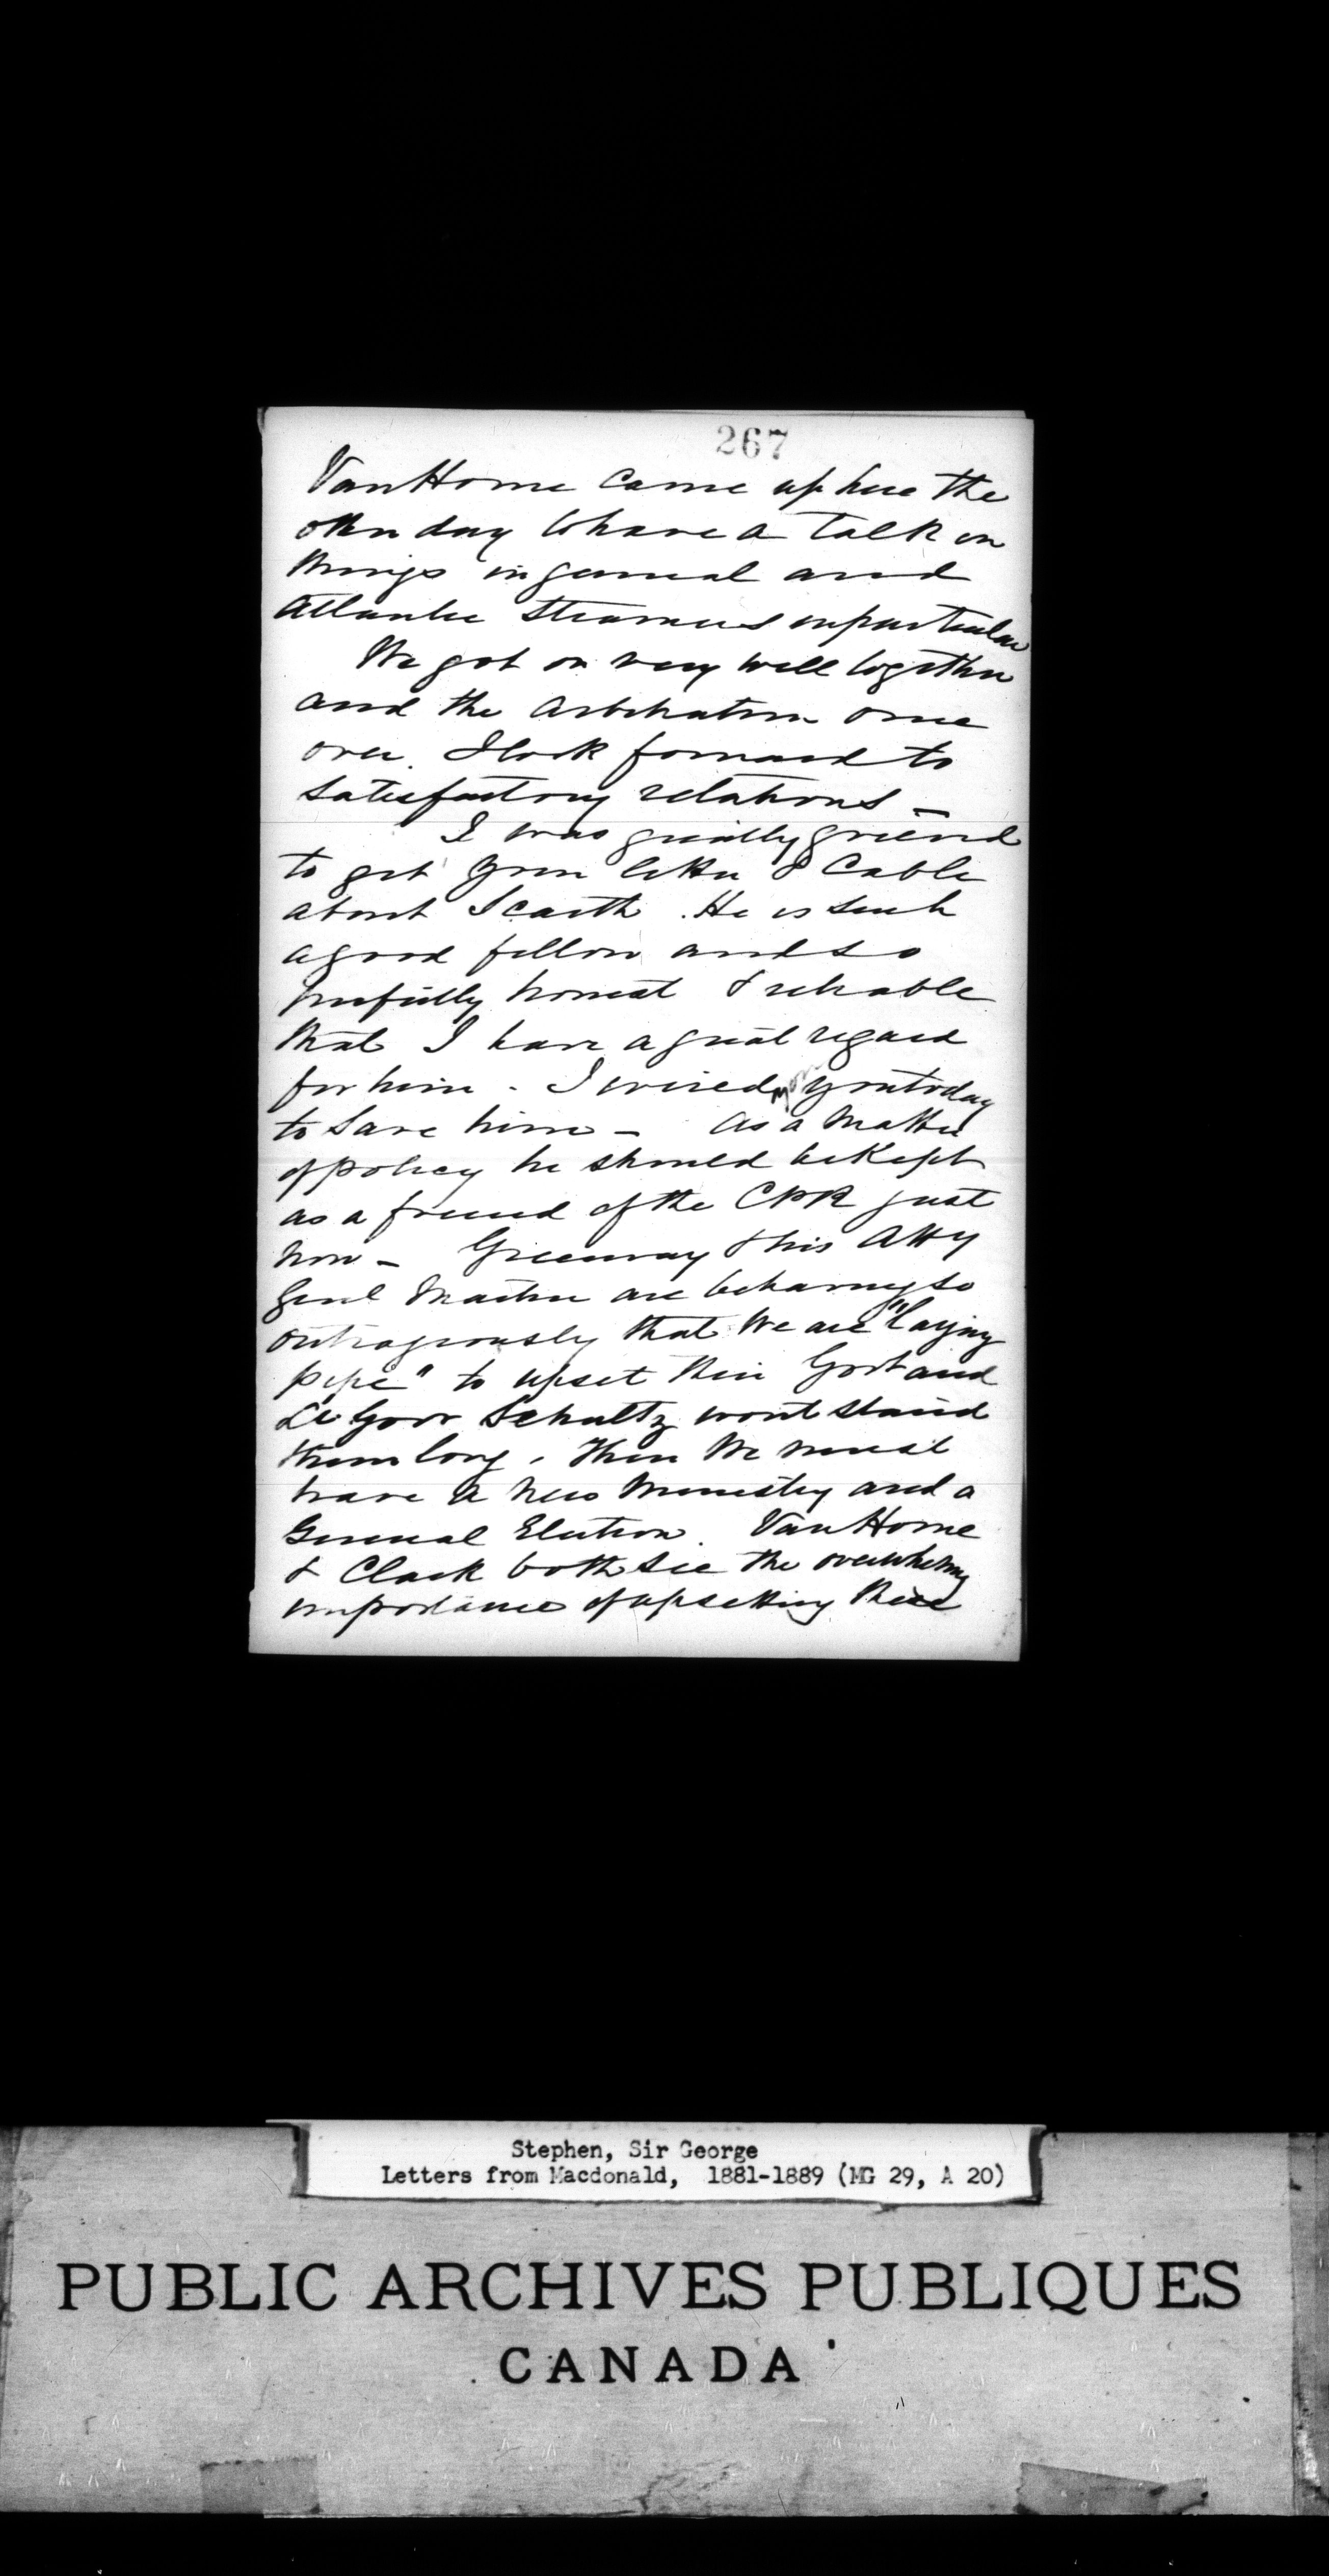 267
Van Horne came up here the
other day to have a talk on
things in general and
Atlantic Steamers in particular
We got on very well together
and the Arbitration once
over. I look forward to
satisfactory relations –
I was greatly grieved
to get your letter & Cable
about Scarth. He is such
a good fellow and so
perfectly honest & reliable
that I have a great regard
for him – I wired you today
to save him – As a matter
of policy he should be kept
as a friend of the CPR just
now – Greenway & his Atty
Genl Martin are behaving so
outrageously that we are "laying
pipe" to upset their Govt and
Lt Govr Schultz wont stand
them long. Then we must
have a new Ministry and a
General Election. Van Horne
& Clark both see the overwhelming
importance of upsetting these
Stephen, Sir George
Letters from Macdonald, 1881-1889 (MG 29, A 20)
PUBLIC ARCHIVES PUBLIQUES
CANADA